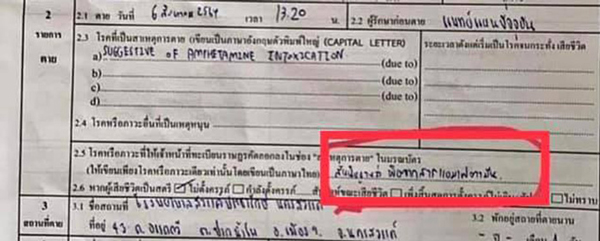 2
รายการ
ตาย
2.1 ตาย วันที่ 6 สิงหาคม 2564 เวลา 13.20 น. 2.2 ผู้รักษาก่อนตาย แพทย์แผนปัจจุบัน
2.3 โรคที่เป็นสาเหตุการตาย (เขียนเป็นภาษาอังกฤษตัวพิมพ์ใหญ่ (CAPITAL LETTER) ระยะเวลาตั้งแต่เริ่มเป็นโรคจนกระทั่งเสียชีวิต
a) SUGGESTIVE OF AMPHETAMINE INTOXICATION (due to)
b) (due to)
c) (due to)
d)
2.4 โรคหรือภาวะอื่นที่เป็นเหตุหนุน
2.5 โรคหรือภาวะที่ให้เจ้าหน้าที่ทะเบียนราษฎร์คัดลอกลงในช่อง "สาเหตุการตาย" ในมรณบัตร
(ให้เขียนเพียงโรคหรือภาวะเดียวเท่านั้นโดยเขียนเป็นภาษาไทย) สันนิษฐานว่า พิษจากสารแอมเฟตามีน
2.6 หากผู้เสียชีวิตเป็นสตรี ไม่ตั้งครรภ์ กำลังตั้งครรภ์ ขณะเสียชีวิต ไม่ทราบ
3
สถานที่ตาย
3.1 ชื่อสถานที่ 3.2 พักอยู่สถานที่ตายนาน
ที่อยู่